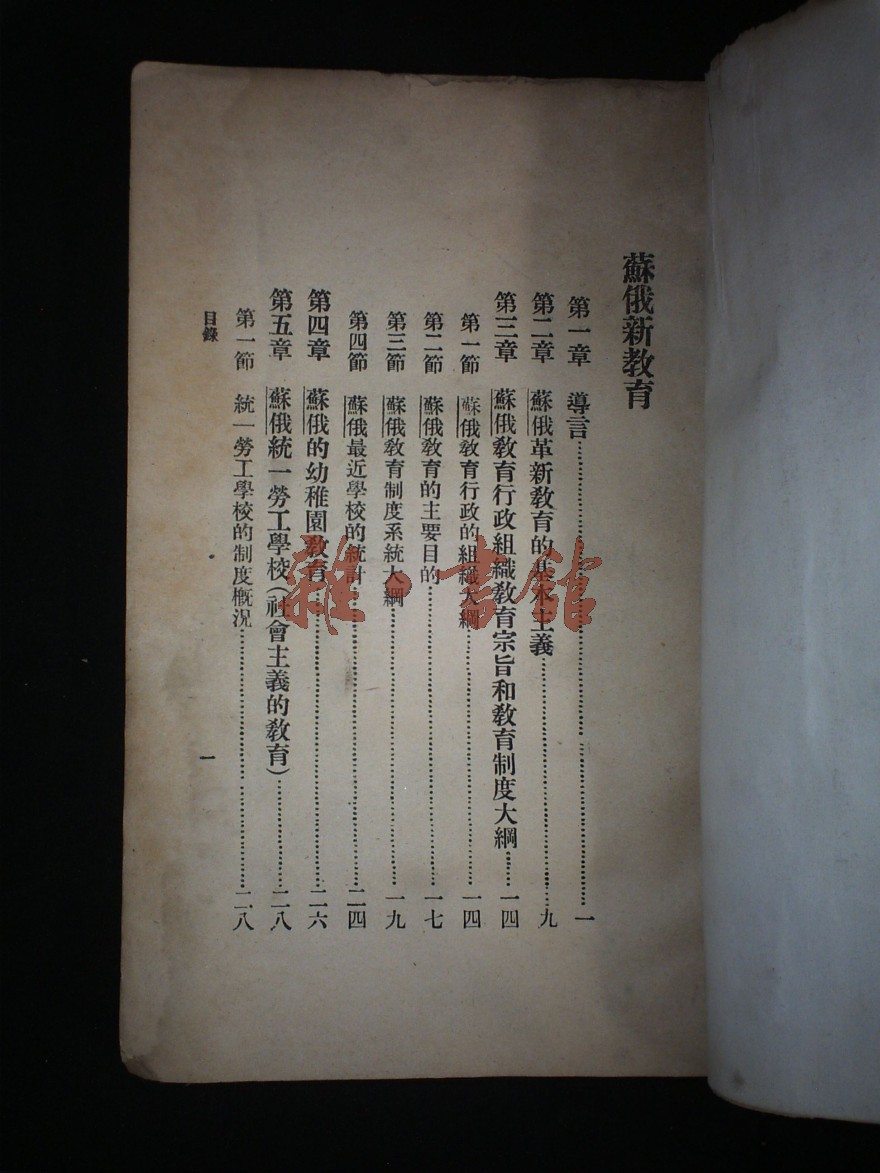 蘇俄新教育
第一章 導言……一
第二章 蘇俄革新教育的基本主義……九
第三章 蘇俄教育行政組織教育宗旨和教育制度大綱……一四
第一節 蘇俄教育行政的組織大綱……一四
第二節 蘇俄教育的主要目的……一七
第三節 蘇俄教育制度系統大綱……一九
第四節 蘇俄最近學校的統計……二四
第四章 蘇俄的幼稚園教育……二六
第五章 蘇俄統一勞工學校(社會主義的教育)……二八
第一節 統一勞工學校的制度概況……二八
目錄 一
雜·書館